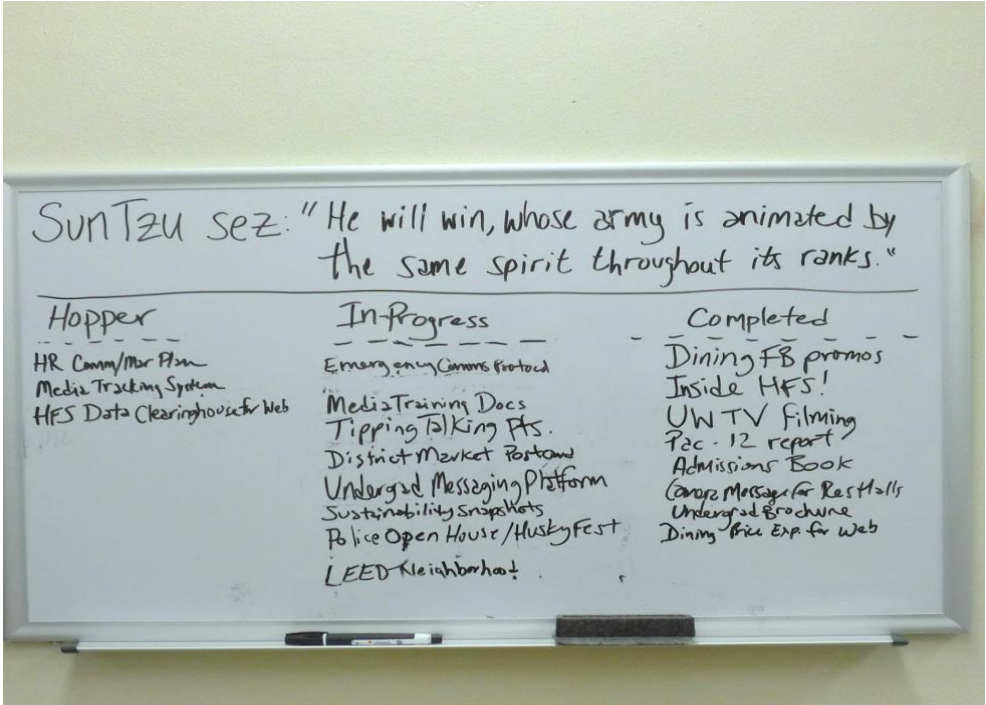 Sun Tzu sez: "He will win, whose army is animated by
the same spirit throughout its ranks."
Hopper
HR Comm/Mar Plan
Media Tracking System
HFS Data Clearinghouse for Web
In-Progress
Emergency Comms Protocol
Media Training Docs
Tipping Talking Pts.
District Market Postcard
Undergrad Messaging Platform
Sustainability Snapshots
Police Open House/Husky Fest
LEED Neighborhood
Completed
Dining FB promos
Inside HFS!
UWTV Filming
Pac-12 report
Admissions Book
Message for Res Halls
Undergrad Brochure
Dining Price Exp. for Web